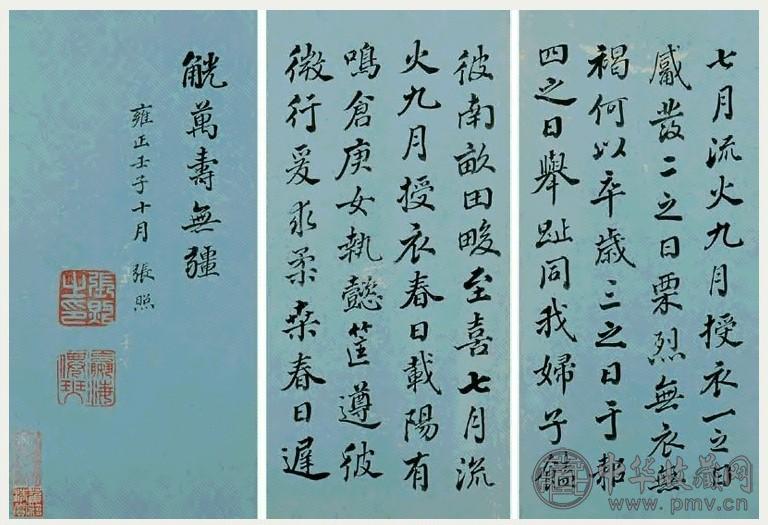 七月流火九月授衣一之日
觱發二之日栗烈無衣無
褐何以卒歲三之日于耜
四之日舉趾同我婦子饁
彼南畝田畯至喜七月流
火九月授衣春日載陽有
鳴倉庚女執懿筐遵彼
微行爰求柔桑春日遲
觥萬壽無疆
雍正壬子十月 張照
張照之印
中华收藏网
www.pmv.cn